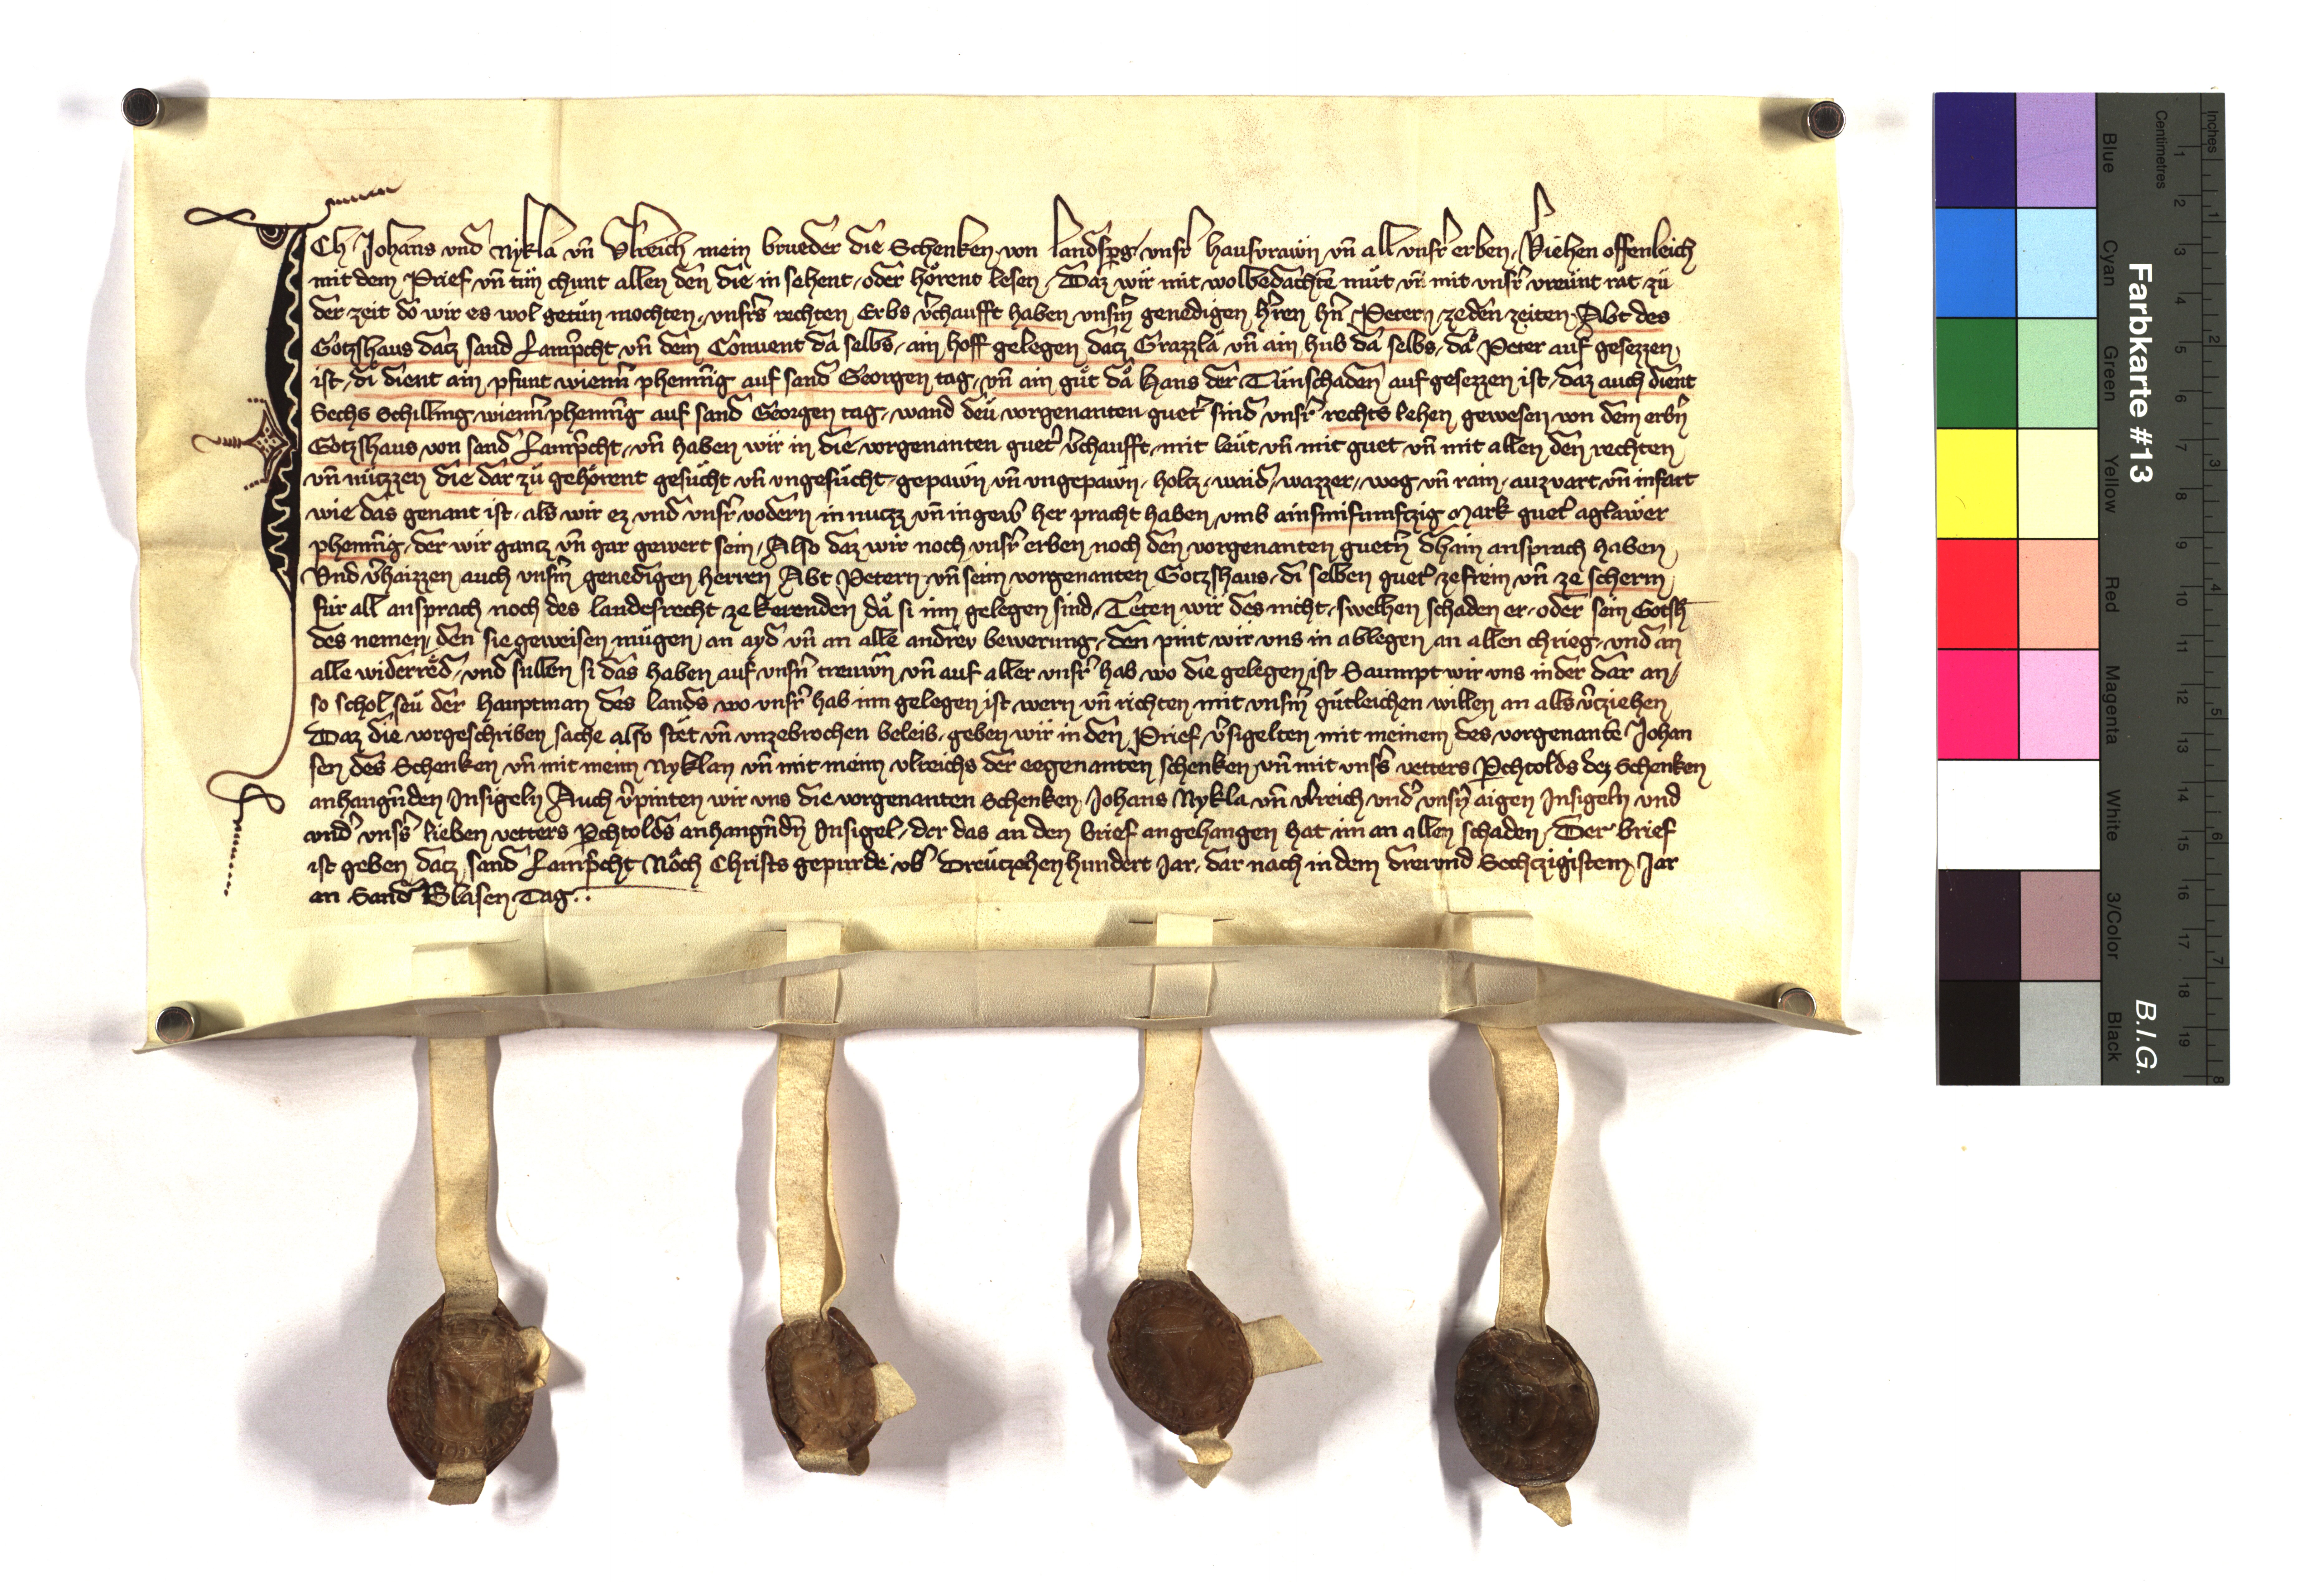 ICh Johans vnd Nykla vn̄ Vlreich mein brueder die Schenken von Landsperg vnser hausvrawn vn̄ all vnser erben, Viehen offenleich
mit dem Prief vn̄ tuͤn chunt allen den die in sehent oder hoͤrent lesen, Daz wir mit wolbedachtē muͤt vn̄ mit vnsr̄ vreunt rat zuͤ
der zeit do wir es wol getuͤn mochten, vnsers rechten Erbs v̄chaufft haben vnsm̄ genedigen hr̄en hn̄ Petern zeden zeiten Abt des
Gotzshaus datz sand Lamp̄cht vn̄ dem Conuent da selbs, ain hoff gelegen datz Grazzla vn̄ ain hub da selbs, da Peter auf gesezzen
ist, di dient ain pfunt wienn̄ phenn̄ig auf sand Georgen tag, vn̄ ain guͤt da Hans der Tuͤnschaden auf gesezzen ist, daz auch dient
Sechs Schilling wienn̄ phenn̄ig auf sand Georgen tag, wand deu vorgenanten guet̄ sind vnsr̄ rechts lehen gewesen von dem erbn̄
Gotzshaus von sand Lamp̄cht, vn̄ haben wir in die vorgenanten guet̄ v̄chaufft, mit leut vn̄ mit guet vn̄ mit allen den rechten
vn̄ nutzzen die dar zuͤ gehoͤrent gesuͤcht vn̄ vngesuͤcht, gepawn vn̄ vngepawn, holtz, waid, wazzer, weg vn̄ rain, auzvart vn̄ infart
wie das genant ist, als wir ez vnd vnsr̄ vodern in nutzz vn̄ in gew̄ her pracht haben, vmb ainsmifumftzig Mark guet̄ aglawer
phenn̄ig, der wir gantz vn̄ gar gewert sein, Also daz wir noch vnsr̄ erben noch den vorgenanten guetn̄ dhain ansprach haben
Vnd v̄haizzen auch vnsm̄ genedigen herren Abt Petern vn̄ seim vorgenanten Gotzshaus, di selben guet̄ ze frein vn̄ ze scherm
fuͤr all ansprach noch des landesrecht ze Kerenden da si inn gelegen sind, Teten wir des nicht, swelhen schaden er oder sein Gotsh̄
des nemen, den sie geweisen muͤgen, an ayd vn̄ an alle andrev bewerung, den pint wir vns in ablegen an allen chrieg, vnd an
alle widerred, vnd sullen si das haben auf vnsn̄ trewn vn̄ auf aller vnsr̄ hab wo die gelegen ist Saumpt wir vns in der dar an,
so schol seu der Hauptman des lands wo vnsr̄ hab inn gelegen ist wern vn̄ richten mit vnsm̄ guͤtleichen willen an alls v̄tziehen
Daz die vorgeschriben sache also stet vn̄ vnzebrochen beleib, geben wir in den Prief v̄sigelten mit meinem des vorgenantē Johan
sen des Schenken vn̄ mit menn Nyklan vn̄ mit meinn vlreichs der eegenanten schenken, vn̄ mit vnss̄ vetters Perchtolds dez Schenken
anhangn̄den Insigeln Auch v̄pinten wir vns die vorgenanten Schenken Johans Nykla vn̄ vlreich vnd̄ vnsn̄ aigen Insigeln vnd
vnd̄ vnss̄ lieben vetters Perchtolds anhangn̄dn̄ Insigel, der das an den brief angehangen hat im an allen schaden, Der brief
ist geben datz sand Lamp̄cht Noch Christs gepurde vb̄ Dreutzehen hundert Jar, dar nach in dem drei vnd Sechtzigistem Jar
an Sand Blasen Tag..
Farbkarte #13
B.I.G.
Inches
Centimetres
Blue
Cyan
Green
Yellow
Red
Magenta
White
3/Color
Black
1 2 3 4 5 6 7 8 9 10 11 12 13 14 15 16 17 18 19
1 2 3 4 5 6 7 8